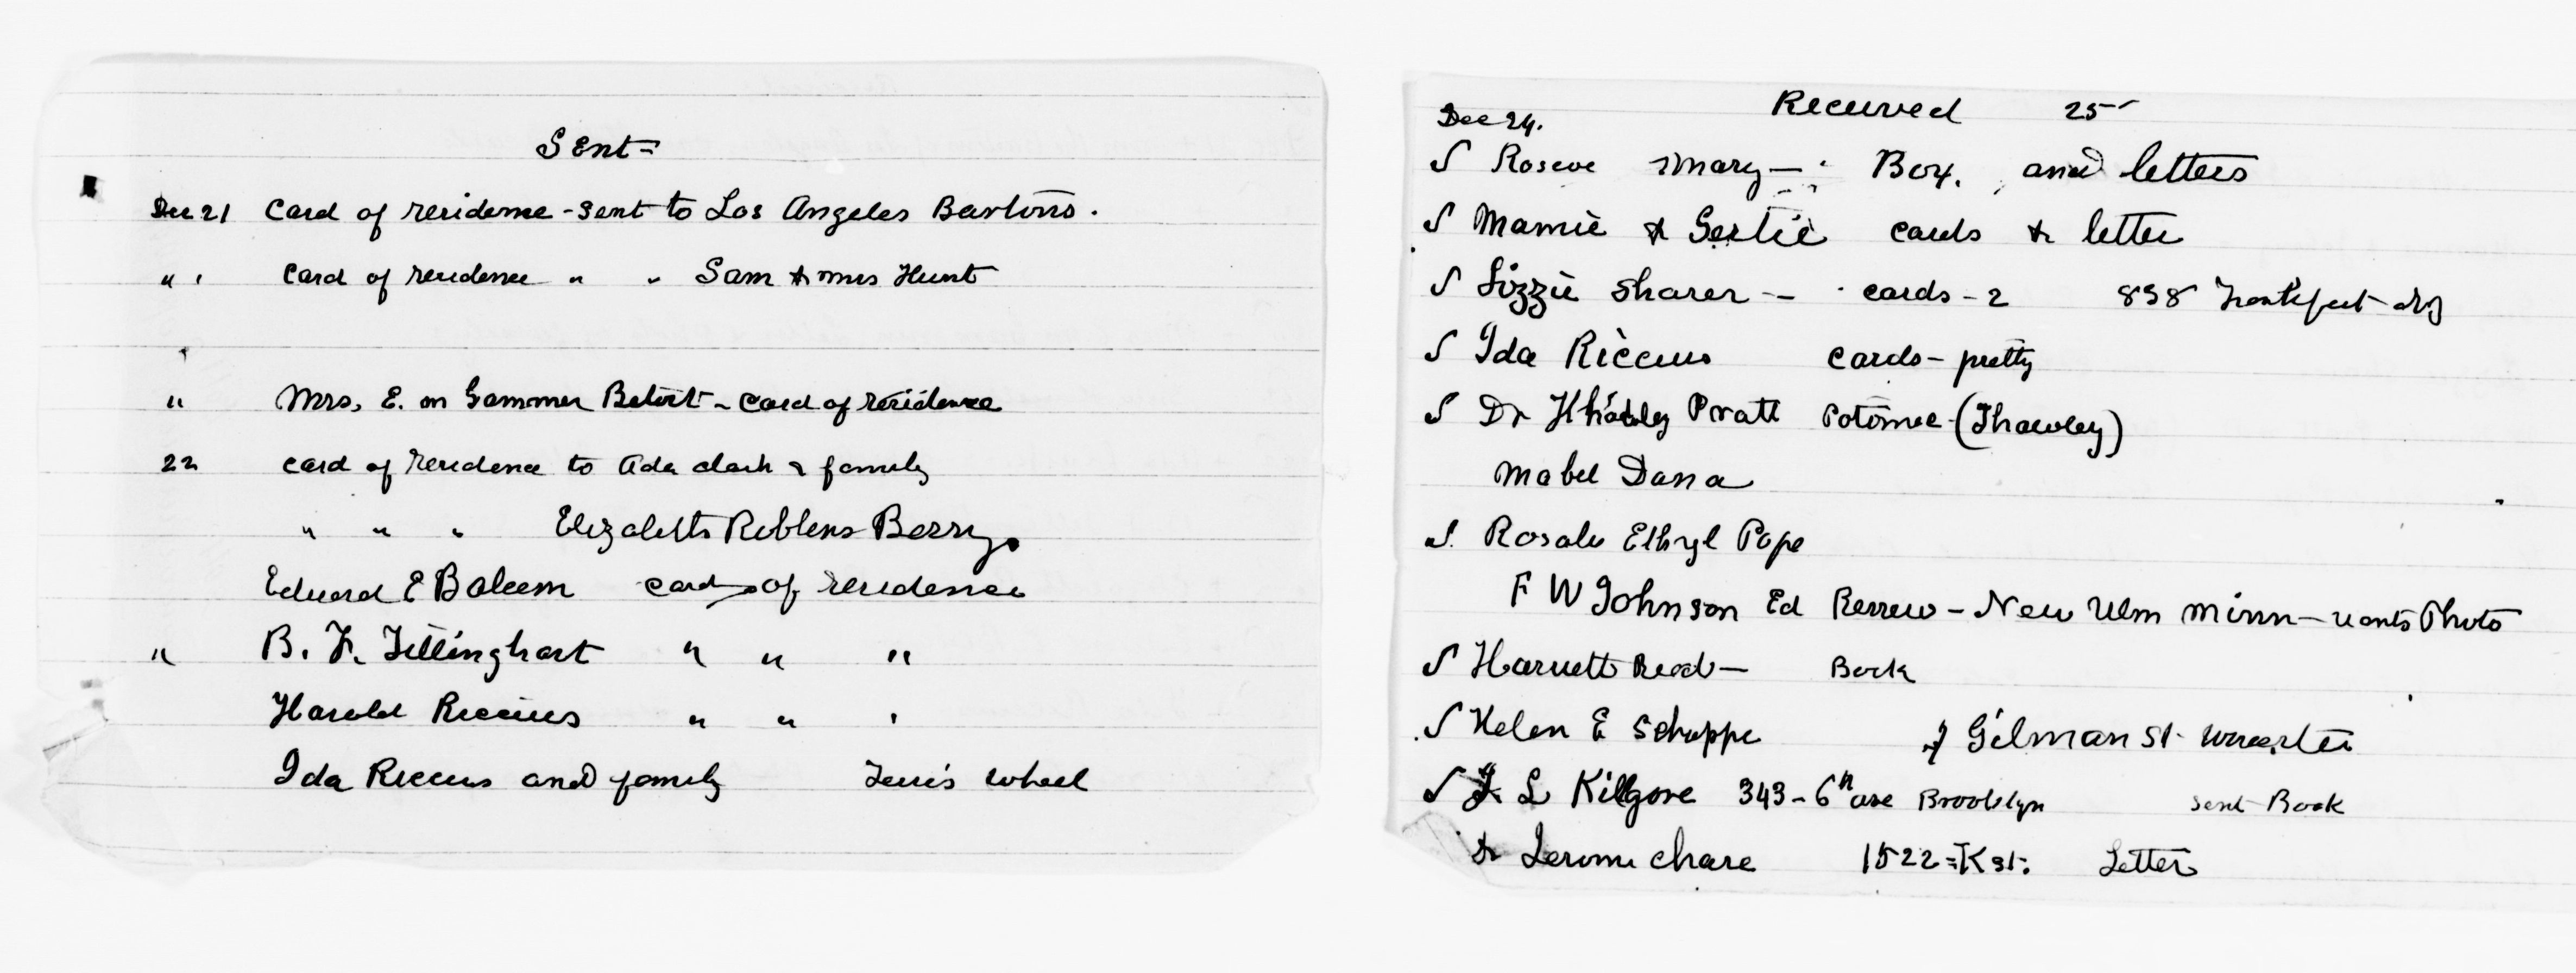 Sent =
Dec 21 Card of residence - sent to Los Angeles Bartons.
" " Card of residence " " Sam & Mrs Hunt
" Mrs. E. M Gammon Beloit - Card of residence
22 card of residence to Ada Clark & family
" " " Elizabeth Robbins Berry.
Edward E Balcom card of residence
" B. F. Tillinghast " " "
Harold Riccius " " "
Ida Riccius and family wheel
Received 25
Dec 24.
S Roscoe Mary - Box. and letters
S Mamie & Gertie cards & letter
S Lizzie Sharer - cards - 2 838
S Ida Riccius cards - pretty
S Dr Pratt Potomac - (Thawley)
Mabel Dana
S. Rosalie Ethyl Pope
F W Johnson Ed Review - New Ulm Minn - wants Photo
S Harriett Reed - Book
S Helen E Schoppe 7 Gilman St. Worcester
S F. L Kilgore 343 - 6th ave Brooklyn sent Book
Dr Jerome Chase 1522 = K st. Letter